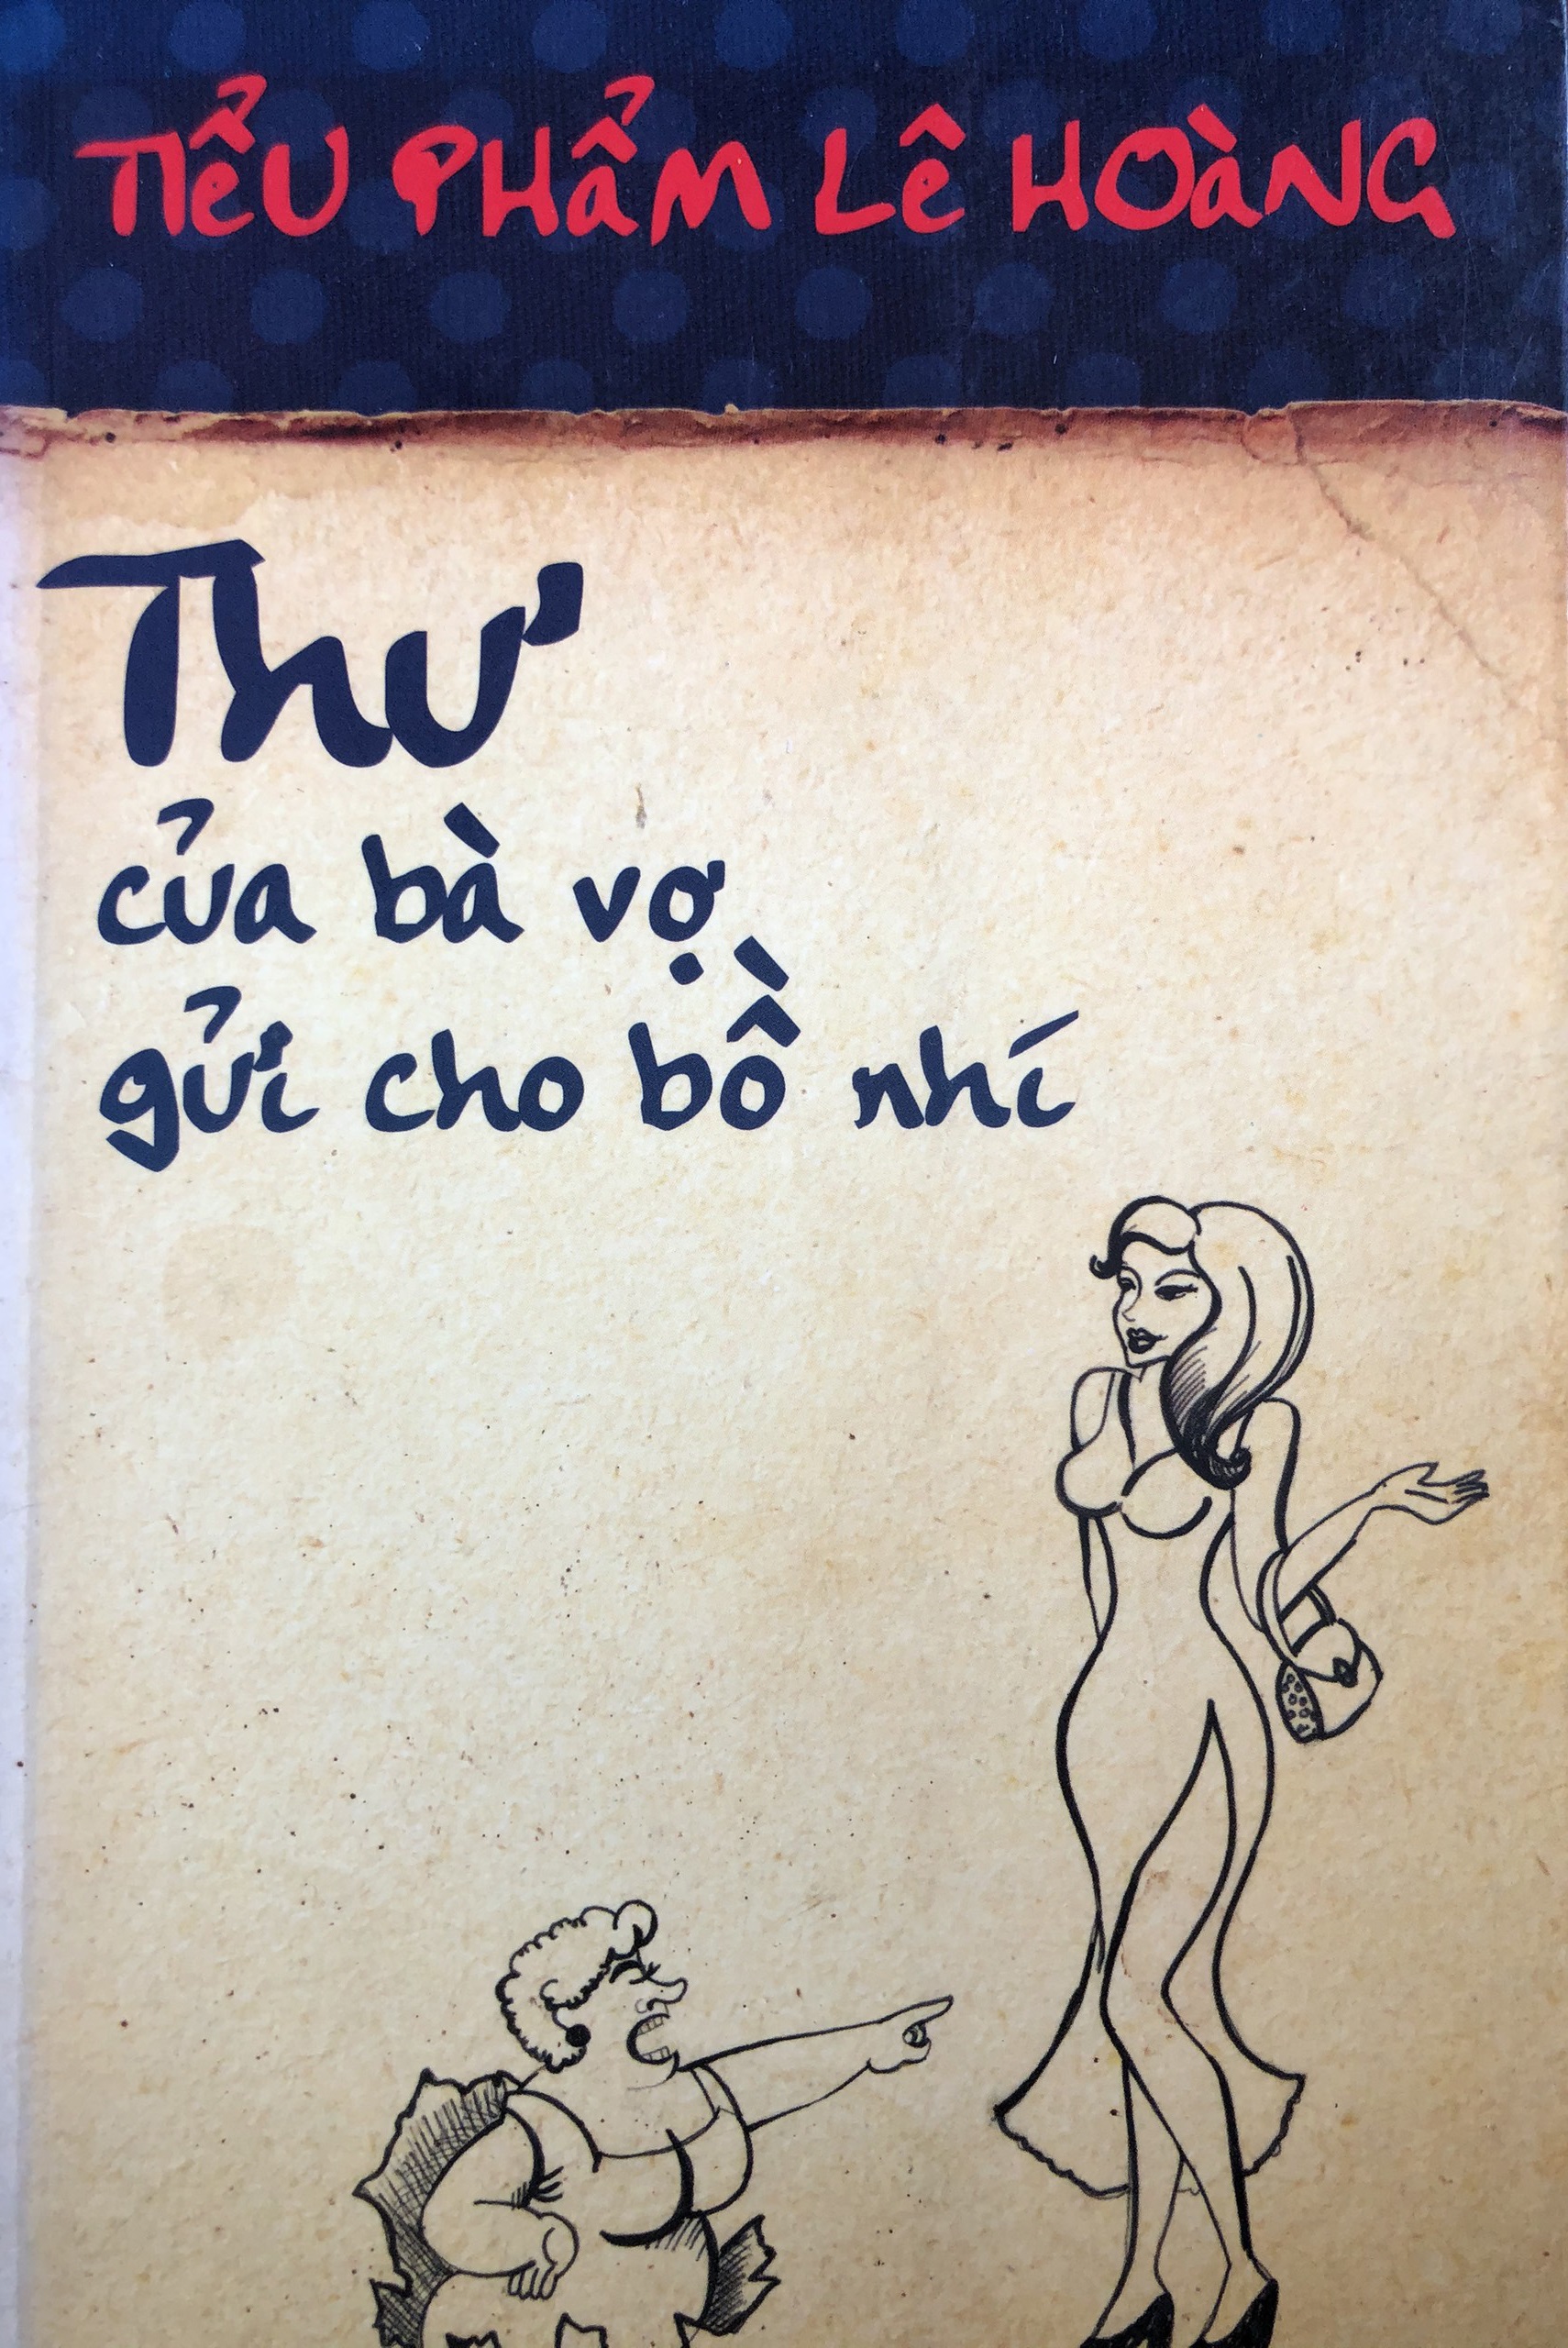 TIỂU PHẨM LÊ HOÀNG
Thư
của bà vợ
gửi cho bồ nhí